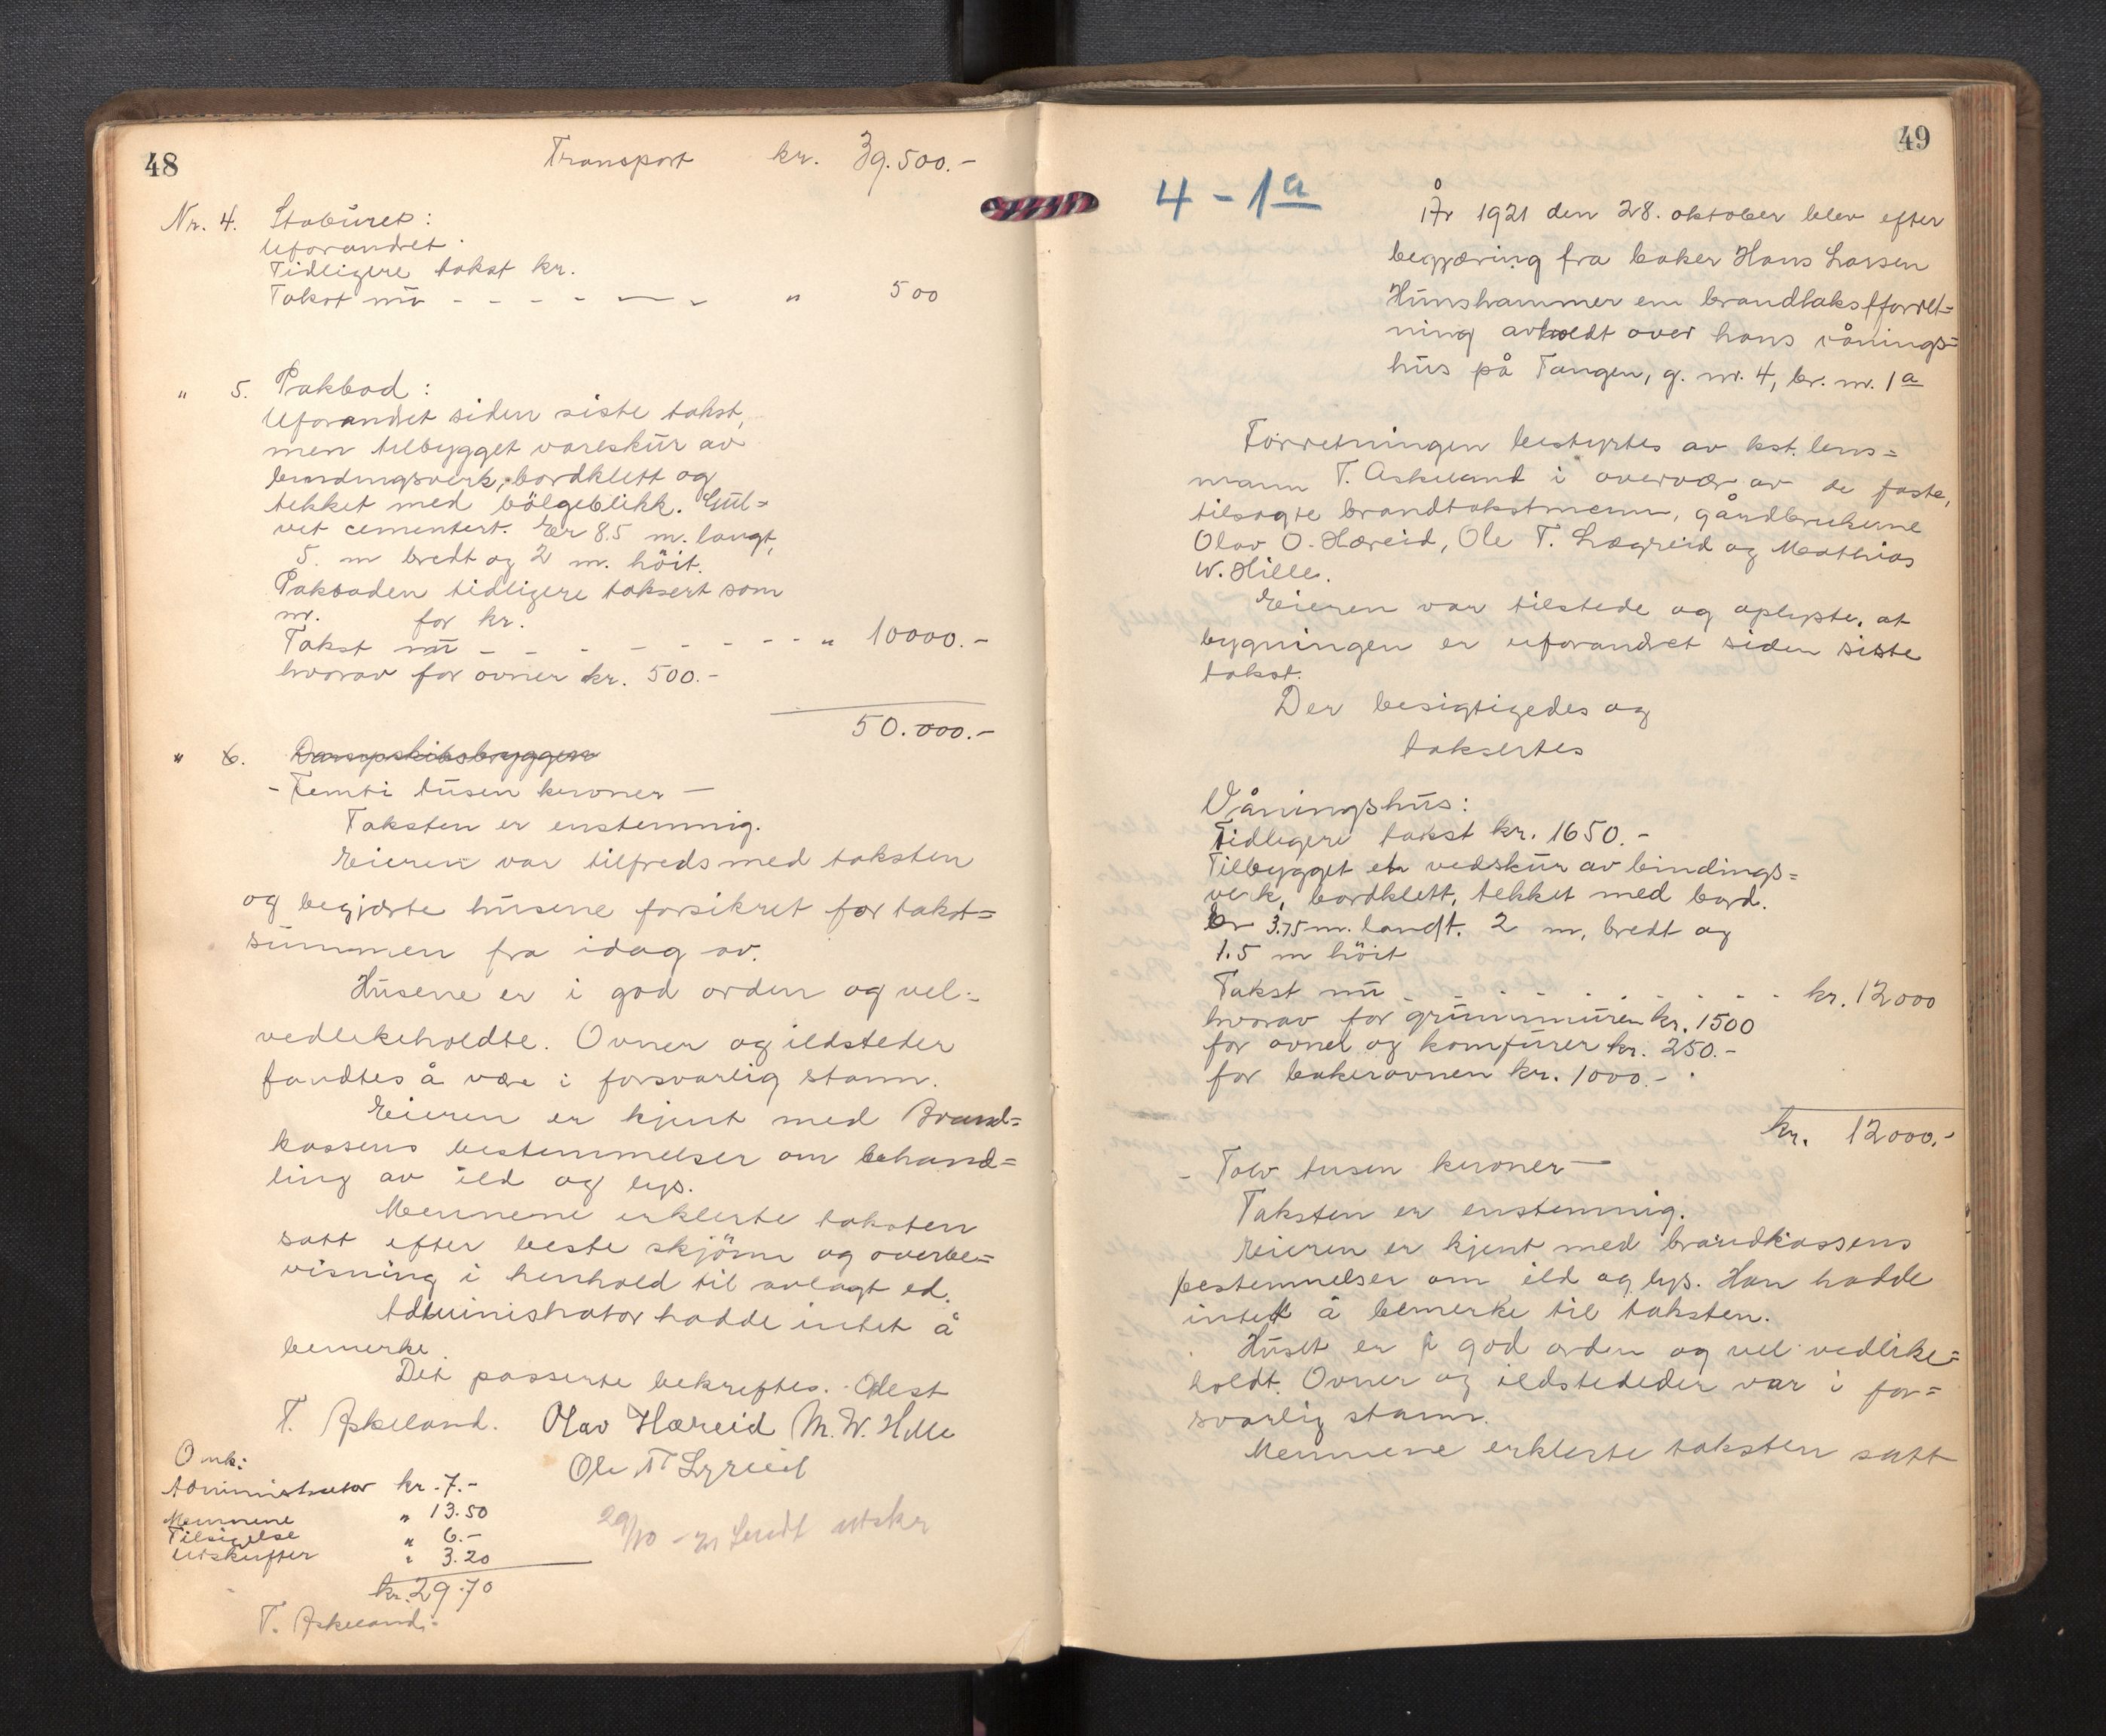 48
Transport kr. 39.500.-
Nr. 4. Staburet:
Uforandret.
Tidligere takst kr.
Takst nu - - - - - - - " 500
" 5. Pakbod:
Uforandret siden siste takst,
men tilbygget vareskur av
bindingsverk, bordklett og
tekket med bölgeblikk. Gul=
vet cementert. Er 8.5 m. langt,
5. m bredt og 2 m. höit.
Pakboden tidligere taksert som
nr. for kr.
Takst nu - - - - - - - - " 10000.-
hvorav for ovner kr. 500.-
50.000.-
" 6. Dampskibsbryggen
- Femti tusen kroner -
Taksten er enstemmig.
Eieren var tilfreds med taksten
og begjærte husene forsikret for takst=
summen fra idag av.
Husene er i god orden og vel=
vedlikeholdte. Ovner og ildsteder
fandtes å være i forsvarlig stann.
Eieren er kjent med Brand=
kassens bestemmelser om behand=
ling av ild og lys.
Mennene erklerte taksten
satt efter beste skjönn og overbe=
visning i henhold til avlagt ed.
Administrator hadde intet å
bemerke.
Det passerte bekreftes.
T. Askeland. Olav Hæreid M. W. Hille
Ole T Lægreid
Omk:
Administrator kr. 7.-
Mennene " 13.50
Tilsigelse " 6.-
Utskrifter " 3.20
kr. 29.70
T. Askeland.
29/10 - 21 Sendt utskr
49
4 - 1a
År 1921 den 28. oktober blev efter
begjæring fra baker Hans Larsen
Hunshammer en brandtakstforret=
ning avholdt over hans vånings=
hus på Tangen, g. nr. 4, br. nr. 1a
Forretningen bestyrtes av kst. lens=
mann T. Askeland i overvær av de faste,
tilsagte brandtakstmenn, gårdbrukerne
Olav O. Hæreid, Ole T. Lægreid og Mathias
W. Hille.
Eieren var tilstede og oplyste, at
bygningen er uforandret siden siste
takst.
Der besigtigedes og
taksertes
Våningshus:
Tidligere takst kr. 1650.-
Tilbygget et vedskur av bindings=
verk, bordklett, tekket med bord.
Er 3.75 m. langt. 2 m. bredt og
1.5 m höit
Takst nu - - - - - - - - - kr. 12000
hvorav for grunnmuren kr. 1500
for ovner og komfurer kr. 250.-
for bakerovnen kr. 1000.-
kr. 12000.-
- Tolv tusen kroner -
Taksten er enstemmig.
Eieren er kjent med brandkassens
bestemmelser om ild og lys. Han hadde
intet å bemerke til taksten.
Huset er i god orden og vel vedlike=
holdt. Ovner og ildstededer var i for=
svarlig stann.
Mennene erklerte taksten satt